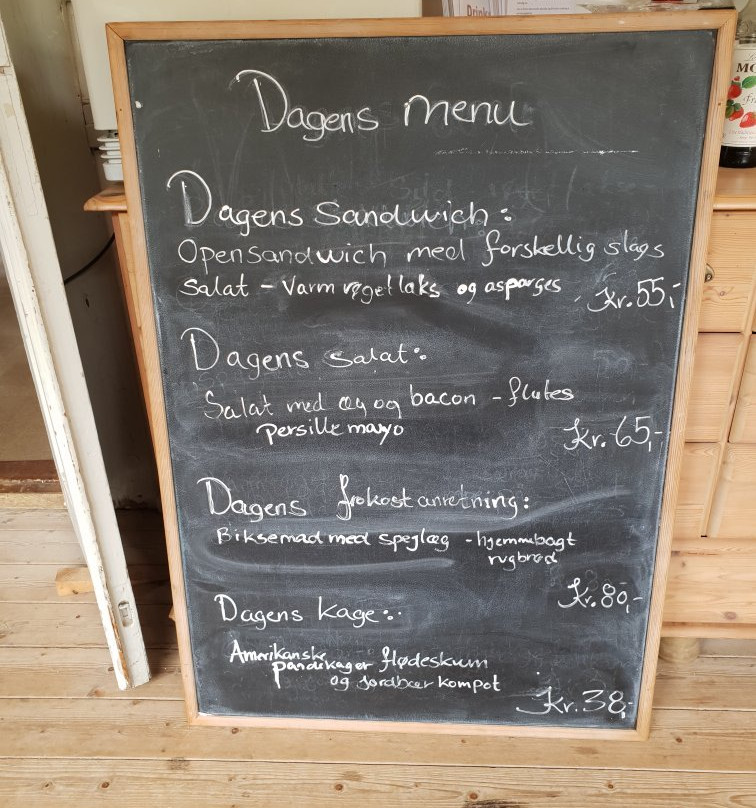 Dagens menu
Dagens Sandwich:
Opensandwich med forskellig slags
Salat - Varm røget laks og asparges
Kr. 55,-
Dagens Salat:
Salat med æg og bacon - flutes
persille mayo
Kr. 65,-
Dagens frokostanretning:
Biksemad med spejlæg - hjemmebagt
rugbrød
Kr. 80,-
Dagens Kage:
Amerikanske
pandekager flødeskum
og jordbær kompot
Kr. 38,-